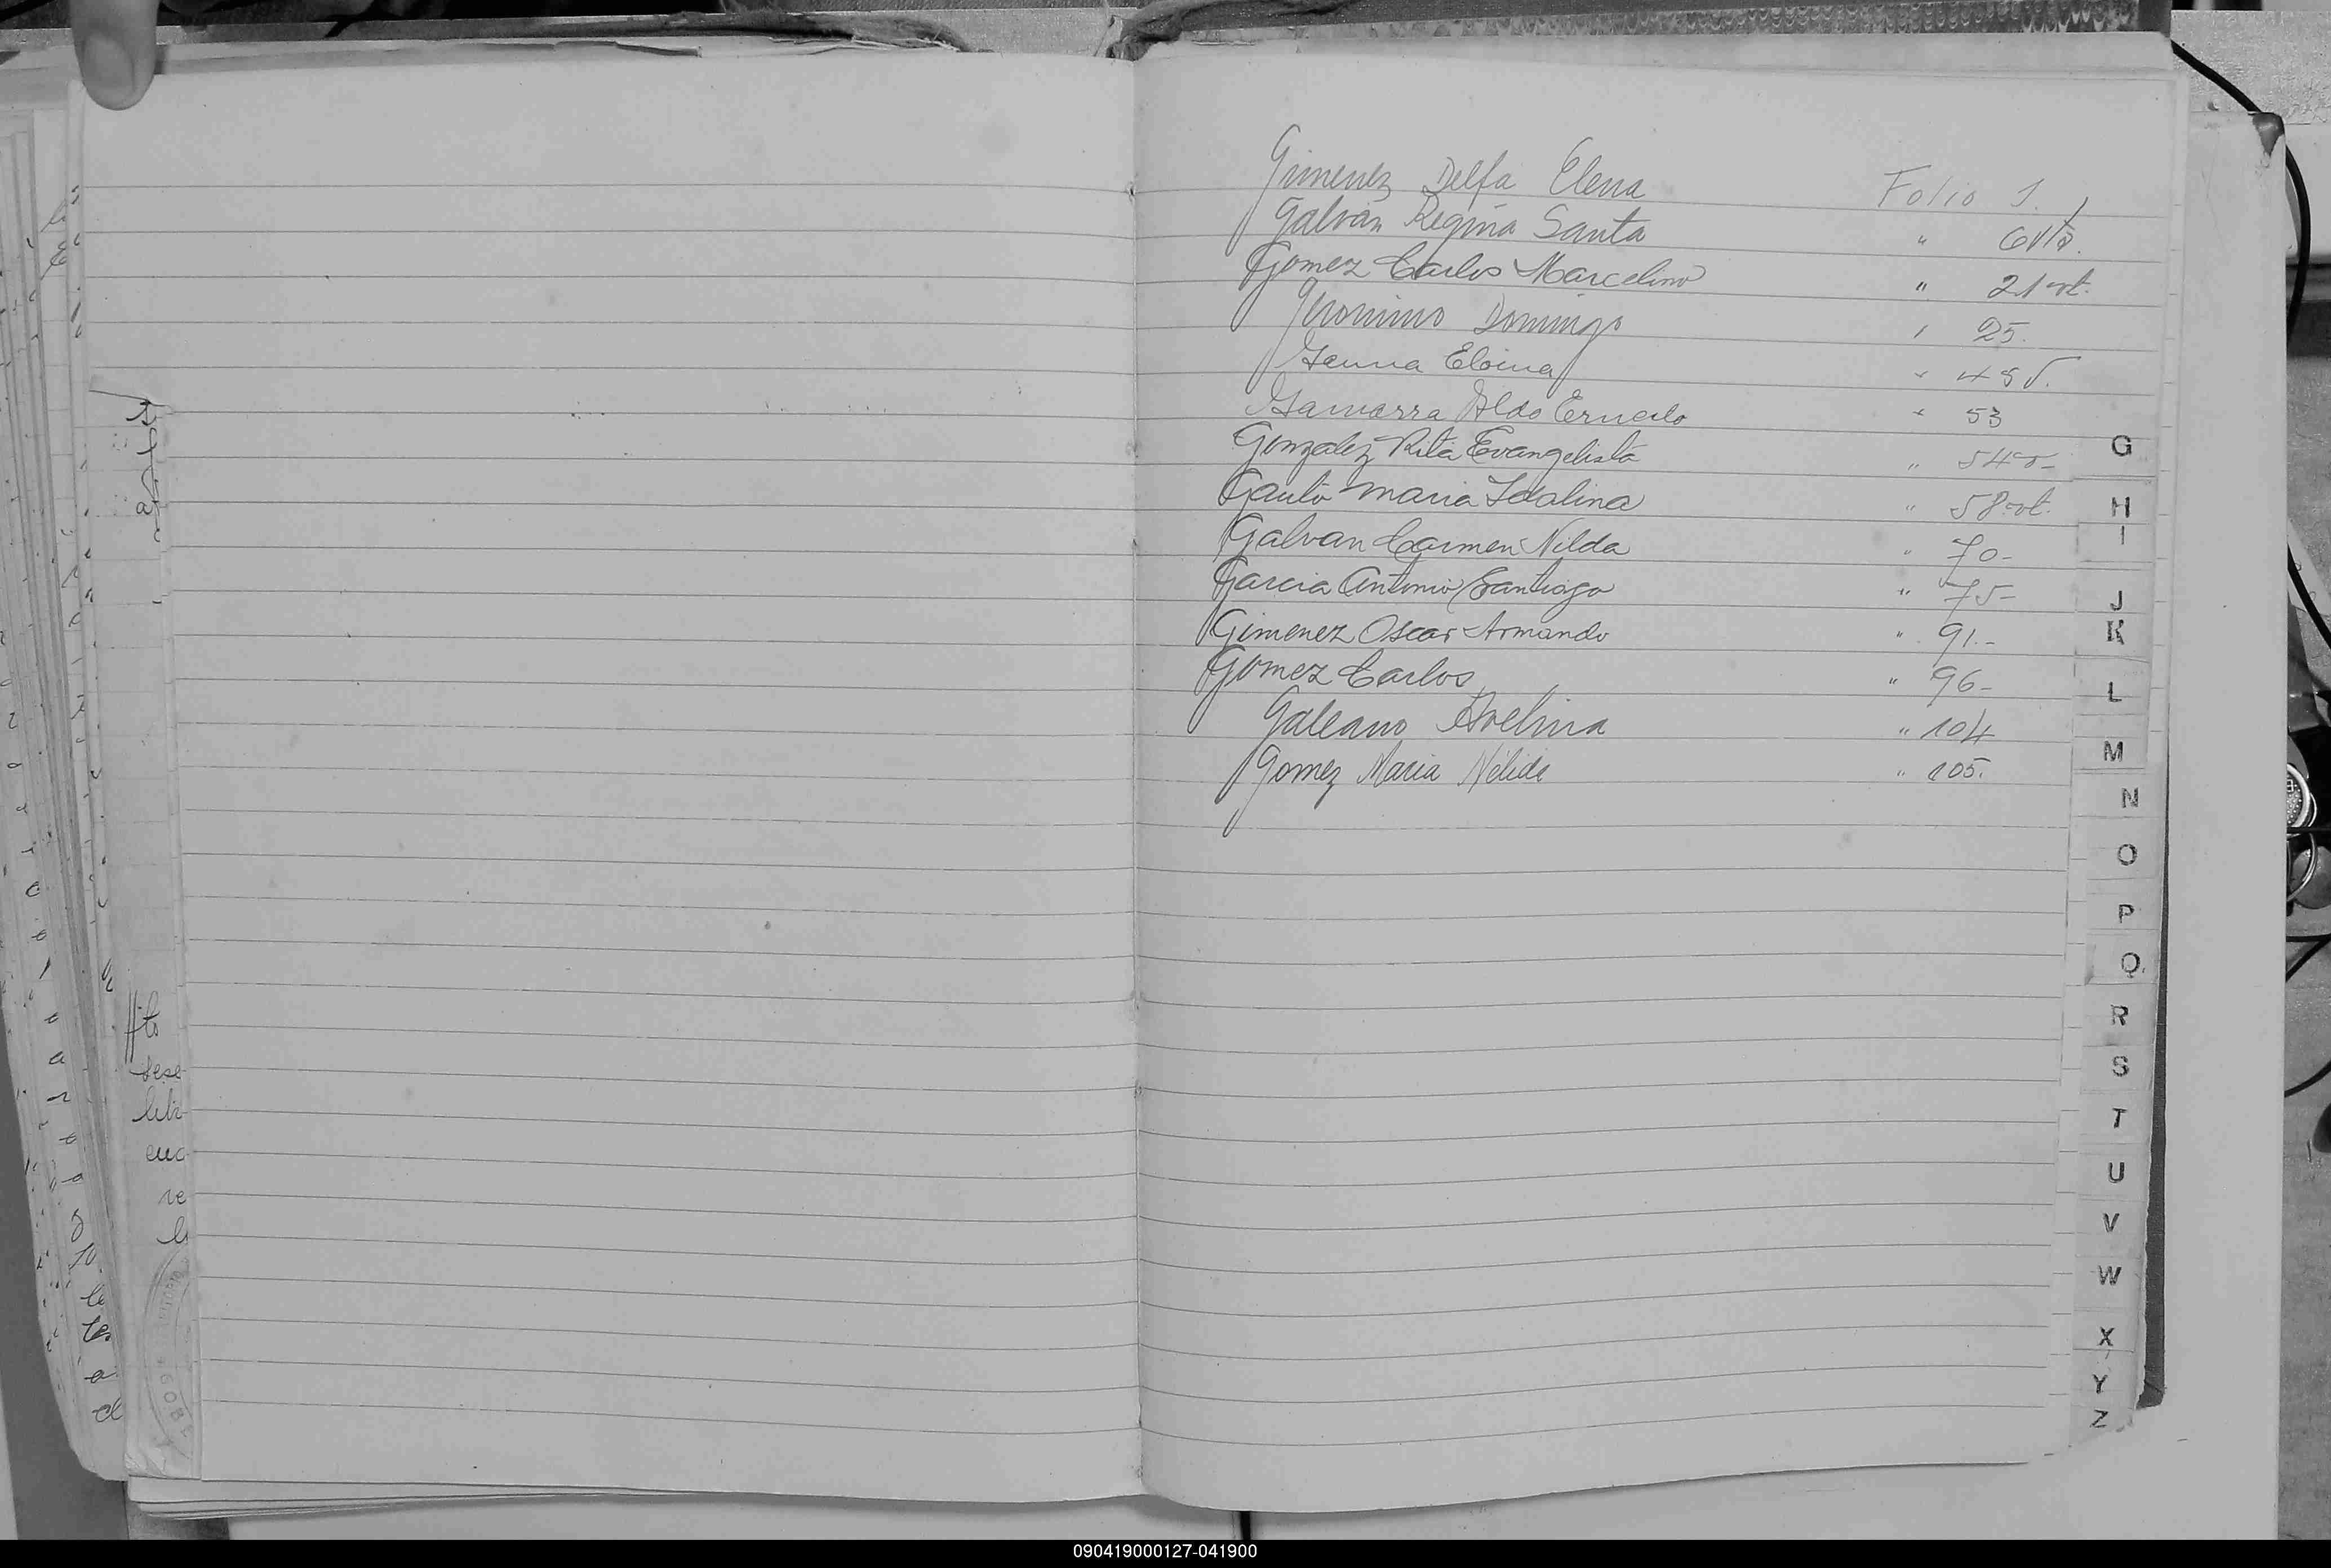 Gimenez Delfa Elena Folio 1.
Galván Regina Santa " 6 vta.
Gomez Carlos Marcelino " 21 vt.
Geronimo Domingo " 25.
Gauna Eloina " 48 v.
Gamarra Aldo Ernesto " 53
Gonzalez Rita Evangelista " 54 v-
Gauto Maria Idalina " 58 vt.
Galvan Carmen Nilda " 70-
Garcia Antonio Santiago " 75-
Gimenez Oscar Armando " 91.-
Gomez Carlos " 96-
Galeano Avelina " 104
Gomez Maria Nélida " 105.
G
H
I
J
K
L
M
N
O
P
Q
R
S
T
U
V
W
X
Y
Z
090419000127-041900